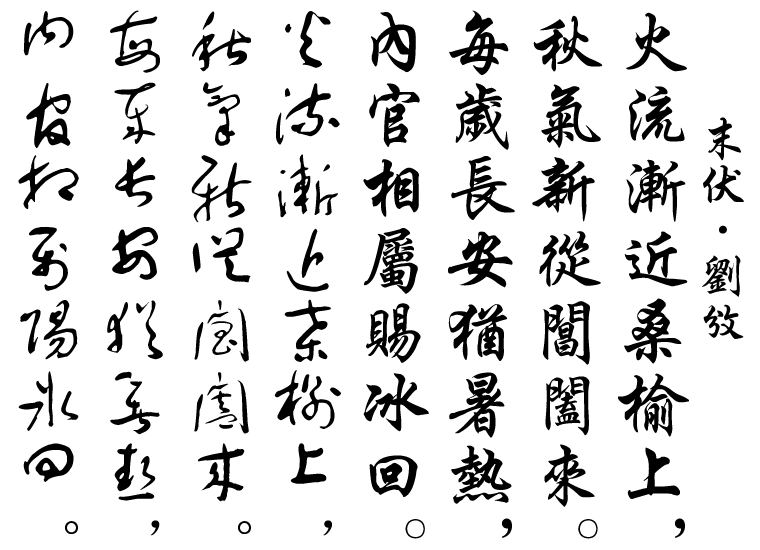 末伏・劉紋
火流漸近桑榆上，
秋氣新從閶闔來。
每歲長安猶暑熱，
內官相屬賜冰回。
火流漸近桑榆上，
秋氣新從閶闔來。
每歲長安猶暑熱，
內官相屬賜冰回。